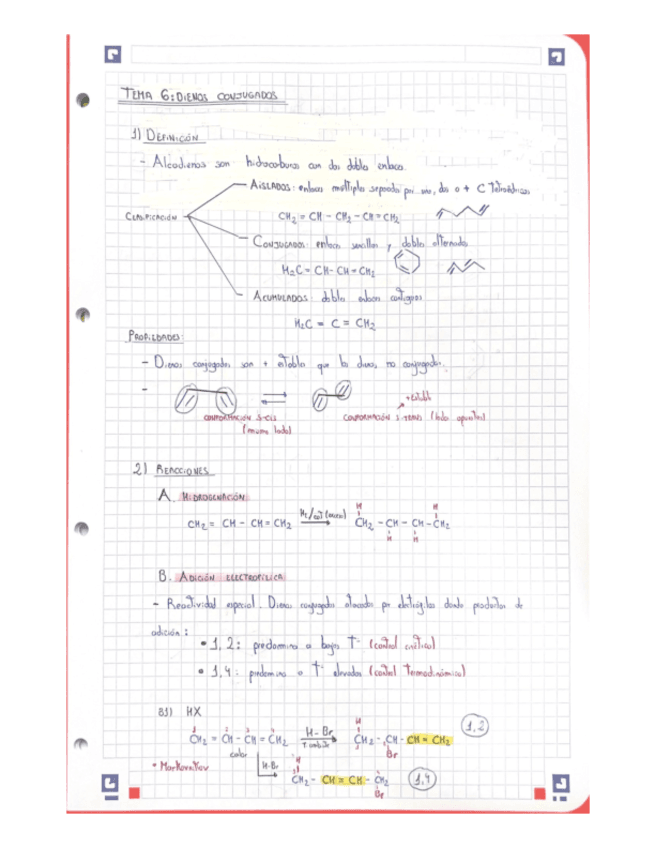 TEMA 6: DIENOS CONJUGADOS
1) DEFINICIÓN
- Alcadienos son hidrocarburos con dos dobles enlaces.
AISLADOS: enlaces múltiples separados por uno, dos o + C Tetraédricos
CLASIFICACIÓN
CH2 = CH - CH2 - CH = CH2
CONJUGADOS: enlaces sencillos y dobles alternados
H2C = CH - CH = CH2
ACUMULADOS: dobles enlaces contiguos
H2C = C = CH2
PROPIEDADES:
- Dienos conjugados son + estables que los dienos no conjugados.
-
+ estable
CONFORMACIÓN S-CIS CONFORMACIÓN S-TRANS (lados opuestos)
(mismo lado)
2) REACCIONES
A. HIDROGENACIÓN
CH2 = CH - CH = CH2 H2/cat (exceso) CH2 - CH - CH - CH2
H H
H H
B. ADICIÓN ELECTROFÍLICA
- Reactividad especial. Dienos conjugados atacados por electrófilos dando productos de
adición:
• 1,2: predomina a bajas Tª (control cinético)
• 1,4: predomina a Tª elevadas (control Termodinámico)
B1) HX
H
1 2 3 4
CH2 = CH - CH = CH2 H-Br CH2 - CH - CH = CH2 1,2
Br
calor
• Markovnikov H-Br H
CH2 - CH = CH - CH2 1,4
Br